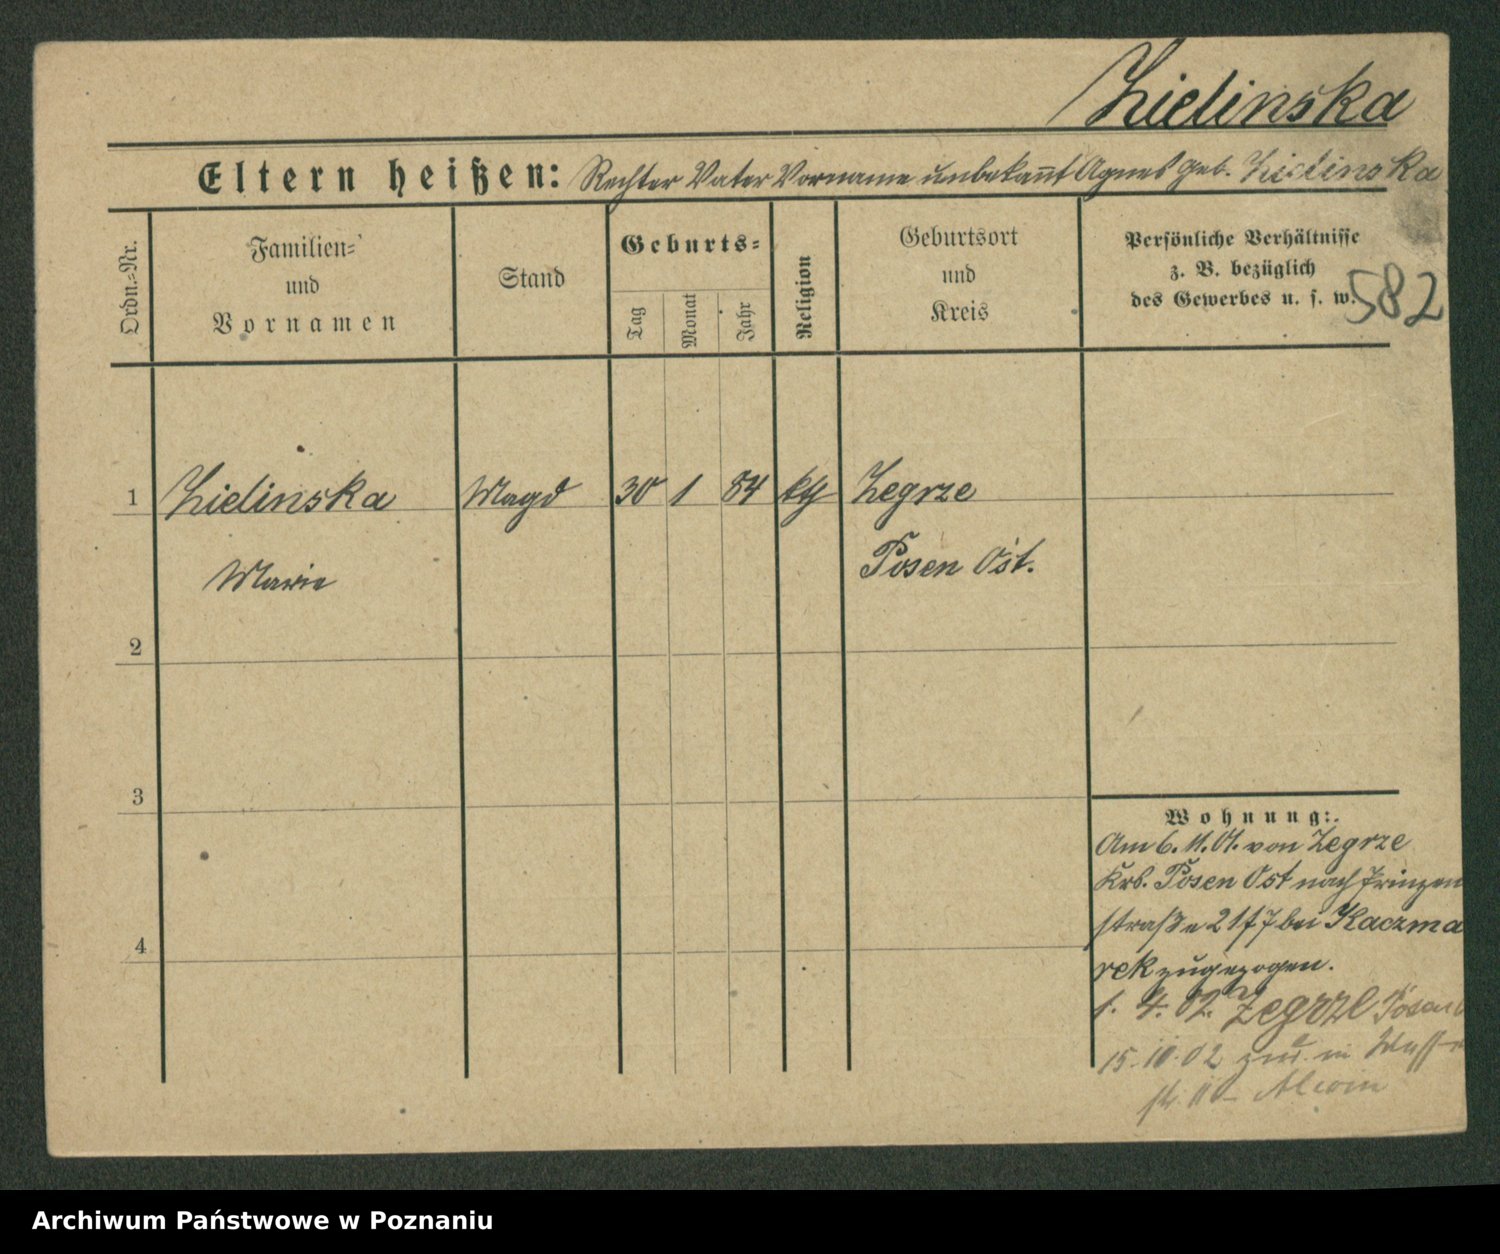 Zielinska
Eltern heißen: Rechter Vater Vorname unbekañt Agnes geb. Zielinska
Ordn.-Nr.
Familien-
und
Vornamen
Stand
Geburts-
Tag
Monat
Jahr
Religion
Geburtsort
und
Kreis
Persönliche Verhältnisse
z. B. bezüglich
des Gewerbes u. s. w.
582
1 Zielinska Magd 30 1 84 kth Zegrze
Marie Posen Ost.
2
3
4
Wohnung:
Am 6. 11. 01. von Zegrze
Krs. Posen Ost nach Prinzen
straße 21 bei Kaczma
rek zugezogen.
1. 4. 02. Zegrze Posen
15. 10. 02
Archiwum Państwowe w Poznaniu